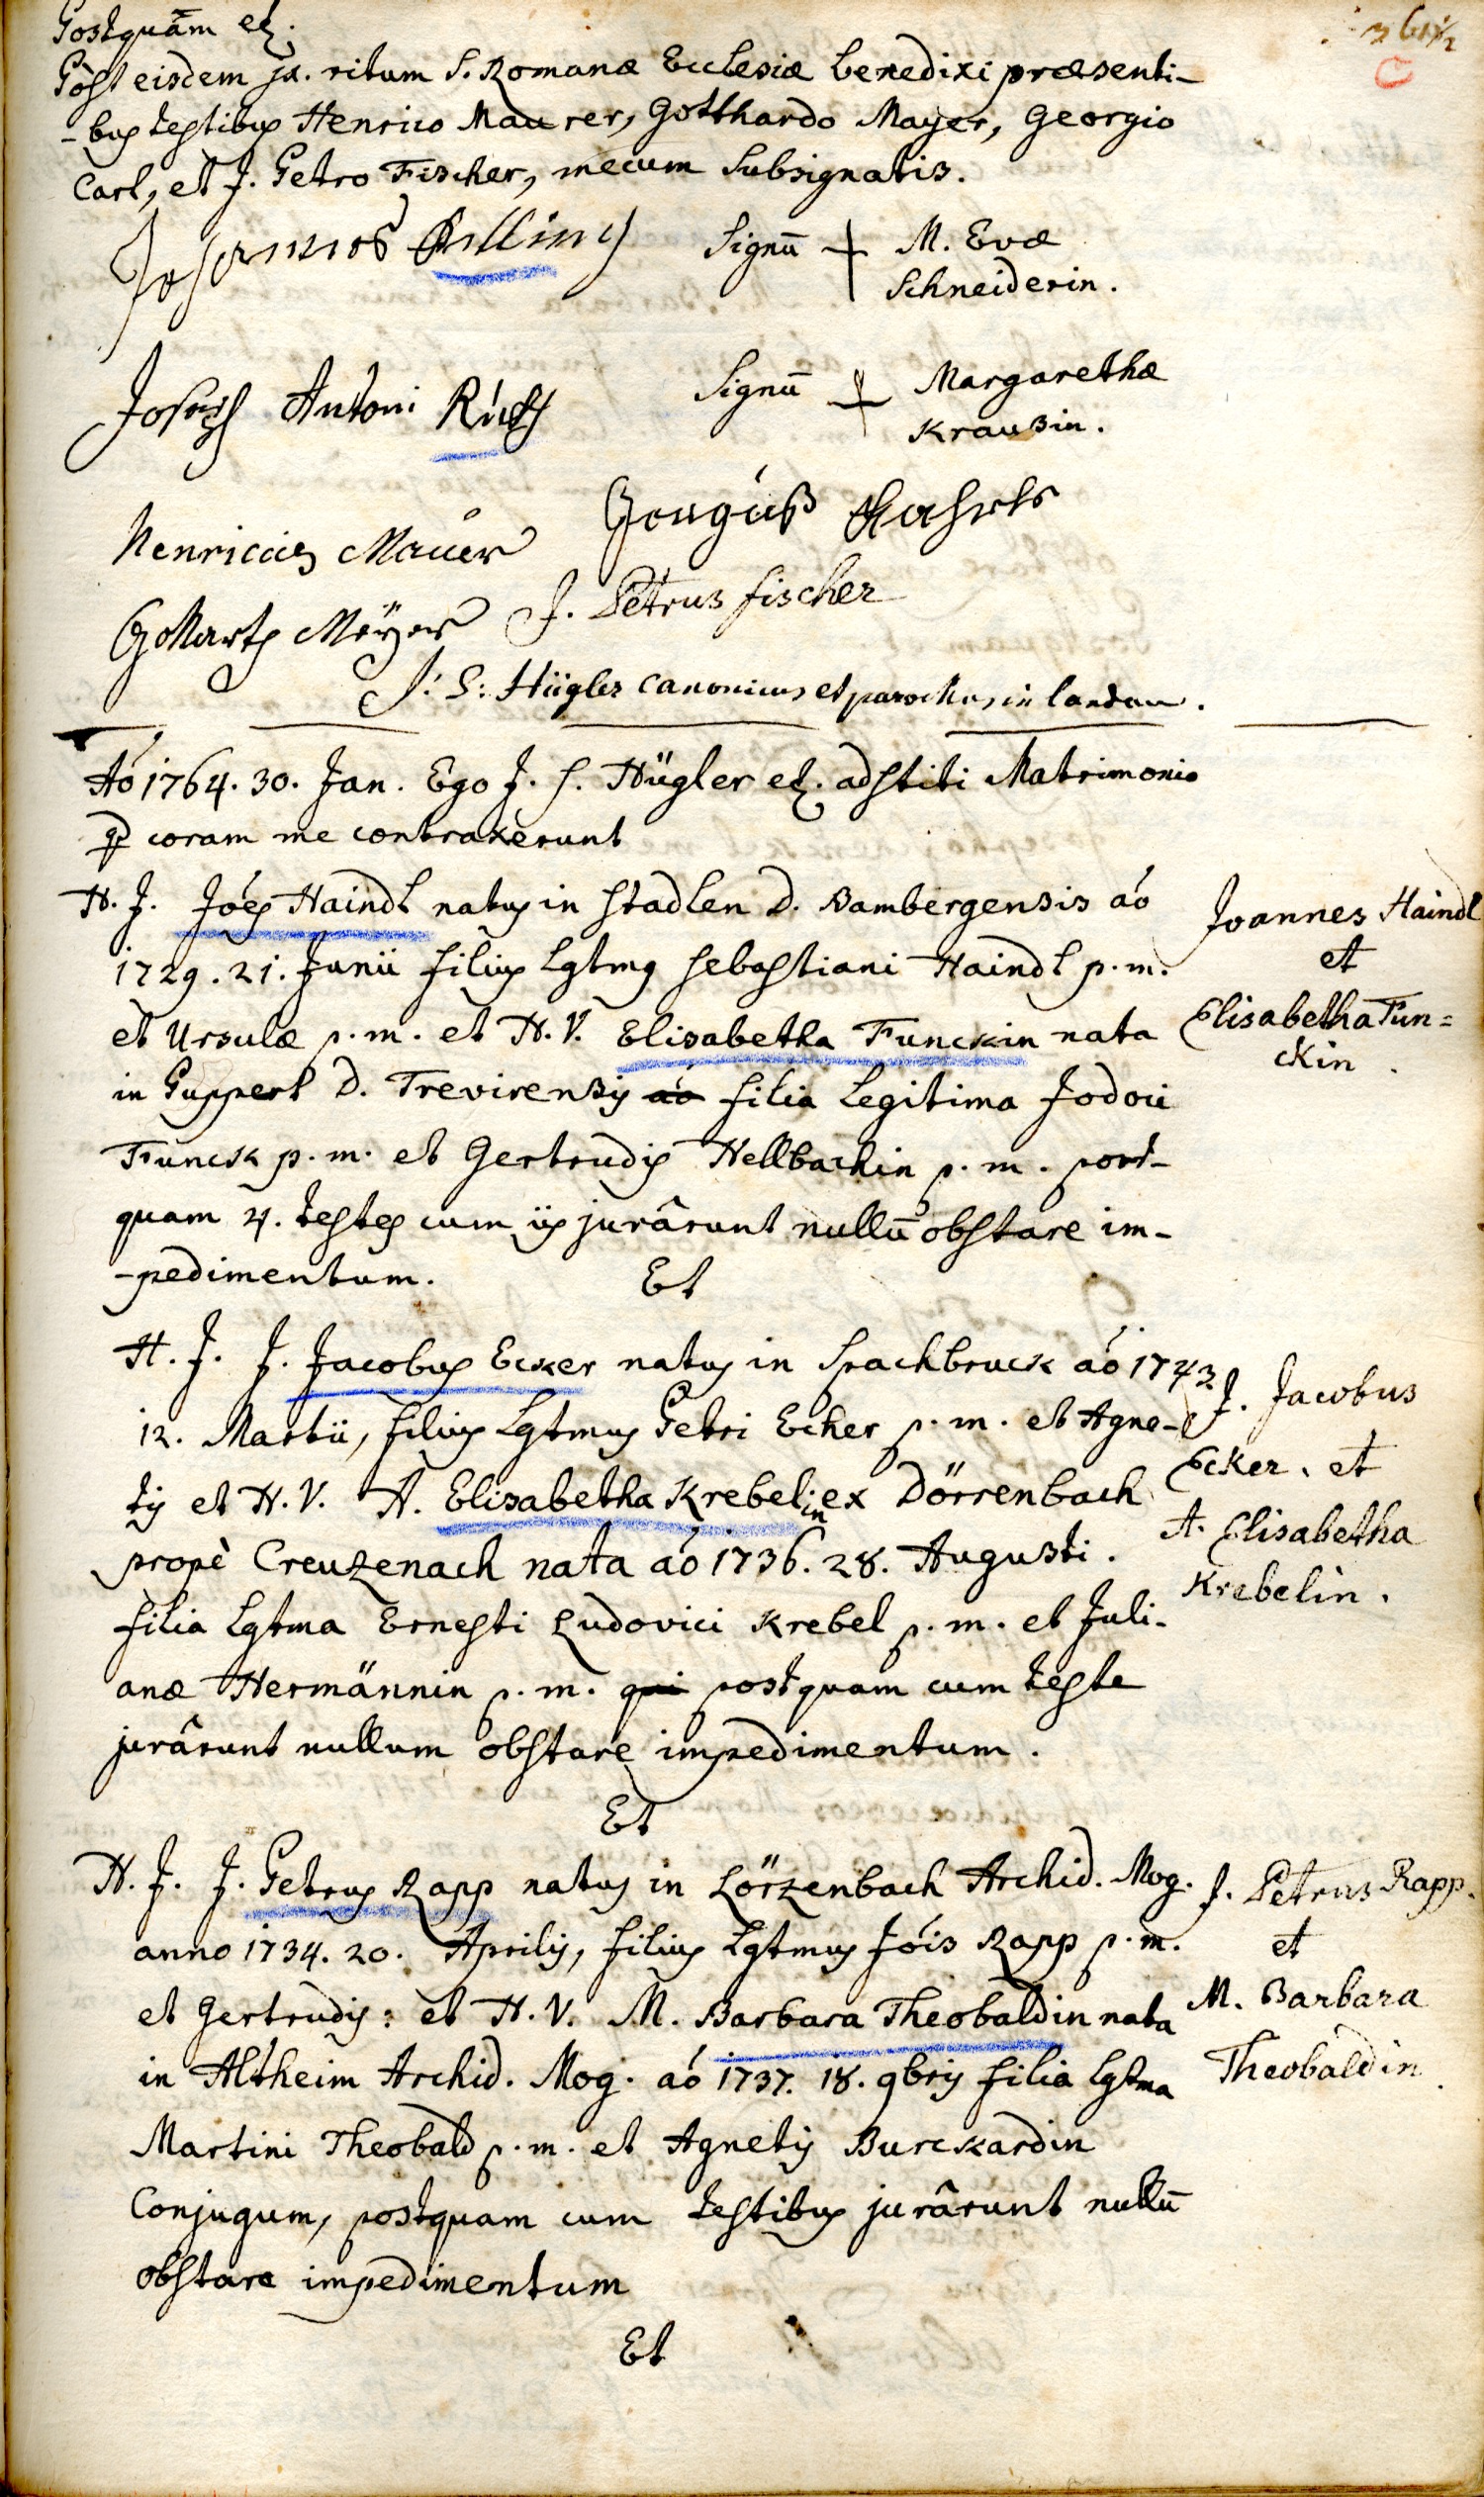 Postquam etz.
Post eisdem jx. ritum S. Romanæ Ecclesiæ benedixi præsenti-
-bus testibus Henrico Maurer, Gotthardo Mayer, Georgio
Carl, et J. Petro Fischer, mecum subsignatis.
Johannes
Signū + M. Evæ
Schneiderin.
Joseph Antoni
Signū + Margarethæ
Krausin.
Henricus Maurer
J. Petrus fischer
Meyer
J: S: Hügler Canonicus et parochus in landau.
Aó 1764. 30. Jan. Ego J. S. Hügler etz. adstiti Matrimonio
coram me contraxerunt
H. J. Jóes Haindl natus in Stadlen D. Bambergensis aó
1729. 21. Junii filius Lgtmg Sebastiani Haindl p. m.
et Ursulæ p. m. et H. V. Elisabetha Funckin nata
in Puppert D. Trevirensis aó filia Legitima Jodoci
Funck p. m. et Gertrudis Hellbachin p. m. post-
quam 4. testes cum iis jurârunt nullū obstare im-
-pedimentum.
Et
Joannes Haindl
et
Elisabetha Fun=
ckin.
H. J. J. Jacobus Ecker natus in Spachbruck aó 1743
12. Martii, filius Lgtmus Petri Ecker p. m. et Agne-
tis et H. V. A. Elisabetha Krebelin ex Dörrenbach
propè Creuzenach nata aó 1736. 28. Augusti.
filia Lgtma Ernesti Ludovici Krebel p. m. et Juli-
anæ Hermännin p. m. qui postquam cum teste
jurârunt nullum obstare impedimentum.
Et
J. Jacobus
Ecker. et
A. Elisabetha
Krebelin.
H. J. J. Petrus Rapp natus in Lörzenbach Archid. Mog.
anno 1734. 20. Aprilis, filius Lgtmus Jóis Rapp p. m.
et Gertrudis: et H. V. M. Barbara Theobaldin nata
in Altheim Archid. Mog. aó 1737. 18. 9bris filia Lgtma
Martini Theobald p. m. et Agnetis Burckardin
Conjugum, postquam cum testibus jurârunt nullū
obstare impedimentum
Et
J. Petrus Rapp.
et
M. Barbara
Theobaldin